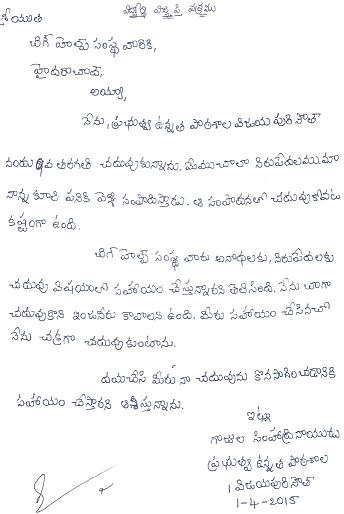 విద్యార్థి విజ్ఞప్తి పత్రము
శ్రీయుత
బిగ్ హెల్ప్ సంస్థ వారికి,
హైదరాబాద్,
అయ్యా,
నేను, ప్రభుత్వ ఉన్నత పాఠశాల విజయపురి సౌత్
నందు తరగతి చదువుకున్నాను. మేము చాలా నిరుపేదలము. మా
నాన్న కూలి పనికి వెళ్లి సంపాదిస్తాడు. ఆ సంపాదనలో చదువుకోవటం
కష్టంగా ఉంది.
బిగ్ హెల్ప్ సంస్థ వారు అనాధలకు, నిరుపేదలకు
చదువు విషయంలో సహాయం చేస్తున్నారని తెలిసింది. నేను బాగా
చదువుకొని ఇంజనీరు కావాలని ఉంది. మీరు సహాయం చేసినచో
నేను చక్కగా చదువుకుంటాను.
దయచేసి మీరు నా చదువును కొనసాగించడానికి
సహాయం చేస్తారని ఆశిస్తున్నాను.
ఇట్లు
గాజుల సింహాద్రి నాయుడు
ప్రభుత్వ ఉన్నత పాఠశాల
విజయపురి సౌత్
1-4-2015